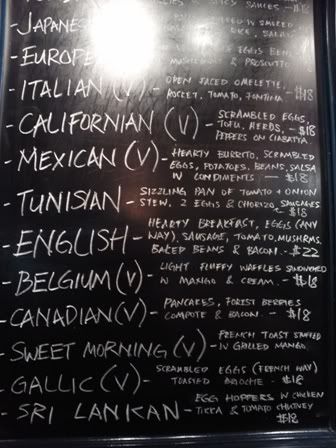 SAUCES - $18
- JAPANESE
- EUROPE
EGGS BENE
MUSHROOMS & PROSCIUTTO
- ITALIAN (V) - OPEN FACED OMELETTE,
ROCKET, TOMATO, FONTINA - $18
- CALIFORNIAN (V) - SCRAMBLED EGGS,
TOFU, HERBS, - $18
PEPPERS ON CIABATTA
- MEXICAN (V) - HEARTY BURRITO, SCRAMBLED
EGGS, POTATOES, BEANS, SALSA
W CONDIMENTS - $18
- TUNISIAN - SIZZLING PAN OF TOMATO + ONION
STEW, 2 EGGS & CHORIZO, SAUSAGES
- $18
- ENGLISH - HEARTY BREAKFAST, EGGS (ANY
WAY), SAUSAGE, TOMATO, MUSHRMS,
BAKED BEANS & BACON - $22
- BELGIUM (V) - LIGHT FLUFFY WAFFLES SANDWICHED
W MANGO & CREAM - $18
- CANADIAN (V) - PANCAKES, FOREST BERRIES
COMPOTE & BACON - $18
- SWEET MORNING (V) - FRENCH TOAST STUFFED
W GRILLED MANGO
- GALLIC (V) - SCRAMBLED EGGS (FRENCH WAY)
TOASTED BRIOCHE - $18
- SRI LANKAN - EGG HOPPERS W CHICKEN
TIKKA & TOMATO CHUTNEY
$18